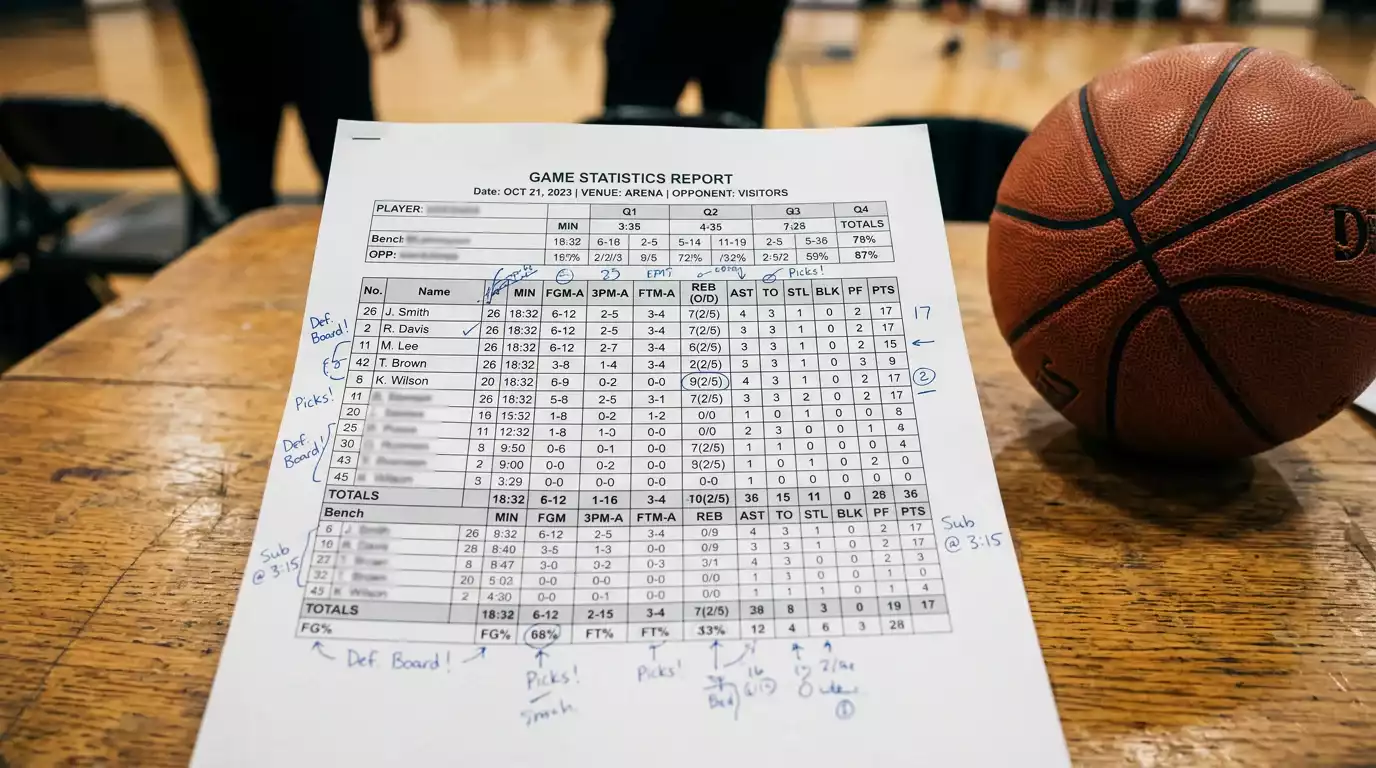 GAME STATISTICS REPORT
Date: OCT 21, 2023 | VENUE: ARENA | OPPONENT: VISITORS
PLAYER: Q1 Q2 Q3 Q4
MIN 3:35 4-35 7:28 TOTALS
Bench 18:32 6-16 2-5 5-14 11-19 2-5 5-36 78%
OPP: 2/2/3 9/5 72!% /32% 2:5/2 59% 87%
25 Picks!
No. Name MIN FGM-A 3PM-A FTM-A REB (O/D) AST TO STL BLK PF PTS
26 J. Smith 26 18:32 6-12 2-5 3-4 7(2/5) 4 3 1 0 2 17 17
Def. Board!
2 R. Davis ✓ 26 18:32 6-12 2-5 3-4 7(2/5) 3 3 1 0 2 17
11 M. Lee 26 18:32 6-12 2-7 3-4 6(2/5) 3 3 1 0 2 15 ←
42 T. Brown 26 18:32 3-8 1-4 3-4 2(2/5) 3 3 1 0 3 9
6 K. Wilson 20 18:32 6-9 0-2 0-0 9(2/5) 4 3 1 0 2 17 2
Picks!
11 26 18:32 5-8 2-5 3-1 7(2/5) 3 3 2 0 2 17
20 16 15:32 1-8 0-2 1-2 0/0 1 0 1 0 0 8
25 11 12:32 1-8 1-0 0-0 0/0 2 3 0 0 1 4
Def. Board!
30 8 9:50 0-6 0-1 0-0 7(2/5) 1 1 0 0 0 4
43 2 9:00 0-0 0-2 0-0 9(2/5) 1 0 1 0 2 0
45 3 3:29 0-0 0-0 0-0 0-0 1 0 0 0 0 0
TOTALS 18:32 6-12 1-16 3-4 10(2/5) 36 15 11 0 28 36
Bench MIN FGM 3PM-A FTM-A REB AST TO STL BLK PF PTS
6 26 8:32 6-12 2-5 3-4 0/9 4 3 1 0 2 17
16 28 8:40 3-5 1-3 0-0 0/9 3 3 1 0 2 17
Sub @ 3:15
Sub @ 3:15
27 8 8:47 3-0 3-2 0-3 3/1 4 3 0 0 2 3
32 20 5:02 0-0 0-0 0-0 0/0 1 1 0 0 1 0
45 2 4:30 0-0 0-1 0-0 0/0 1 1 0 0 1 4
TOTALS 18:32 6-12 2-15 3-4 7(2/5) 38 8 3 0 19 17
FG% FG% 68% FT% FT% 33% 12 4 6 3 28
Def. Board! Picks! Picks!